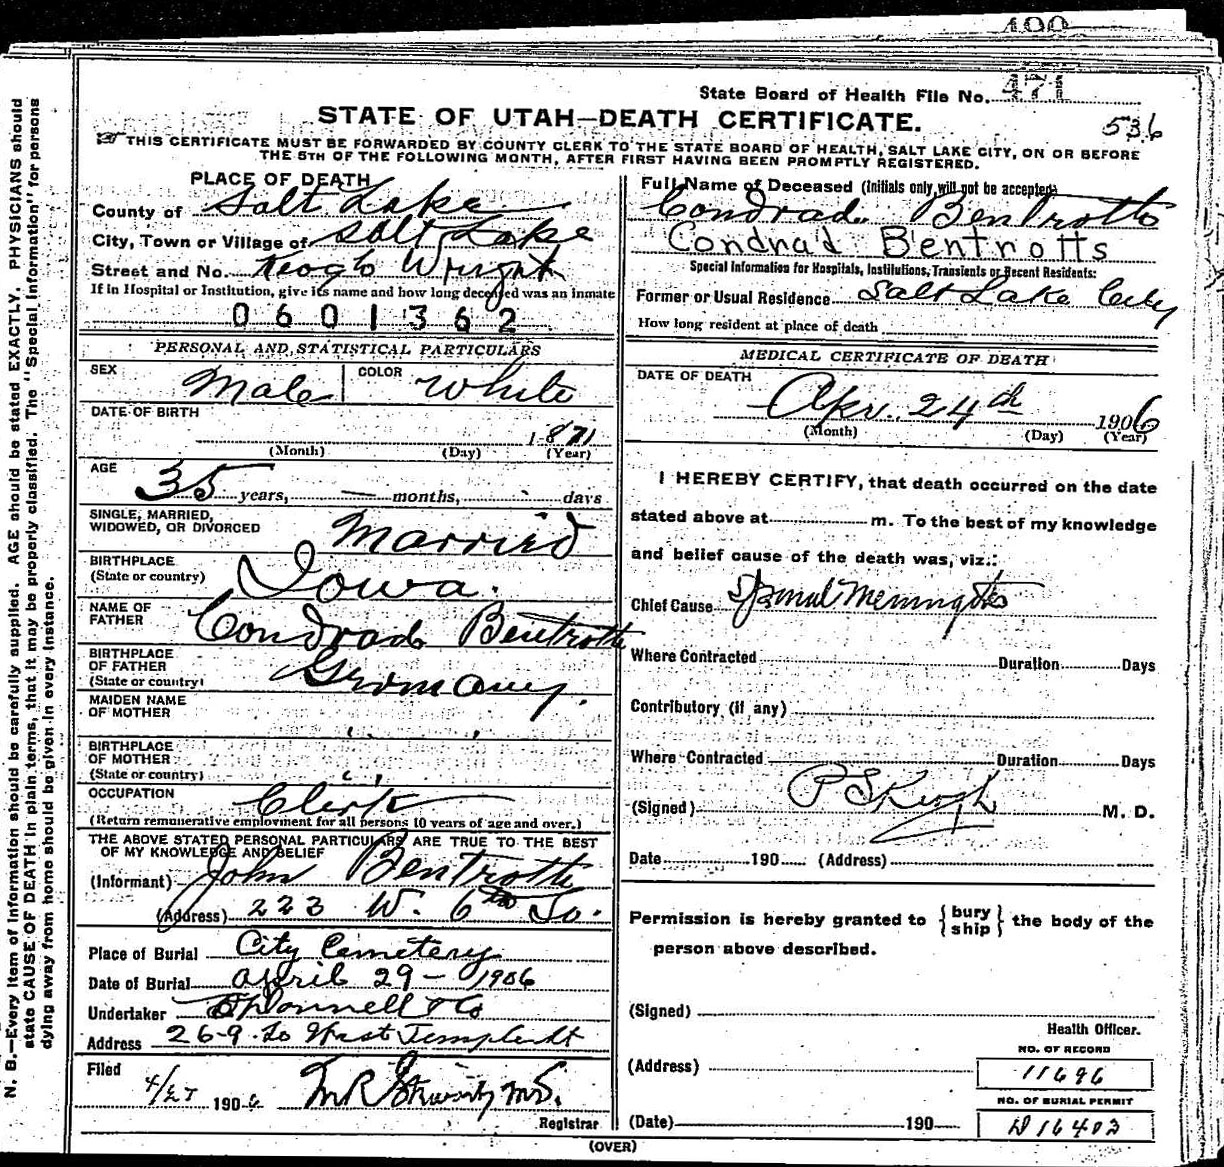 State Board of Health File No. 471
STATE OF UTAH—DEATH CERTIFICATE.
536
THIS CERTIFICATE MUST BE FORWARDED BY COUNTY CLERK TO THE STATE BOARD OF HEALTH, SALT LAKE CITY, ON OR BEFORE
THE 5TH OF THE FOLLOWING MONTH, AFTER FIRST HAVING BEEN PROMPTLY REGISTERED.
PLACE OF DEATH
County of Salt Lake
City, Town or Village of Salt Lake
Street and No. Keogh Wright
If in Hospital or Institution, give its name and how long deceased was an inmate
0601362
PERSONAL AND STATISTICAL PARTICULARS
SEX Male COLOR White
DATE OF BIRTH
1871
(Month) (Day) (Year)
AGE
35 years, — months, days
SINGLE, MARRIED,
WIDOWED, OR DIVORCED Married
BIRTHPLACE
(State or country) Iowa.
NAME OF
FATHER Condrad Bentrotts
BIRTHPLACE
OF FATHER
(State or country) Germany.
MAIDEN NAME
OF MOTHER
BIRTHPLACE
OF MOTHER
(State or country)
OCCUPATION Clerk
(Return remunerative employment for all persons 10 years of age and over.)
THE ABOVE STATED PERSONAL PARTICULARS ARE TRUE TO THE BEST
OF MY KNOWLEDGE AND BELIEF
(Informant) John Bentrotts
(Address) 223 W. 6th So.
Place of Burial City Cemetery
Date of Burial April 29 - 1906
Undertaker O'Donnell & Co
Address 269 So West Temple St
Filed
4/27 1906 M.D.
Registrar
Full Name of Deceased (Initials only will not be accepted)
Condrad Bentrotts
Condrad Bentrotts
Special Information for Hospitals, Institutions, Transients or Recent Residents:
Former or Usual Residence Salt Lake City
How long resident at place of death
MEDICAL CERTIFICATE OF DEATH
DATE OF DEATH
Apr. 24th 1906
(Month) (Day) (Year)
I HEREBY CERTIFY, that death occurred on the date
stated above at m. To the best of my knowledge
and belief cause of the death was, viz.:
Chief Cause Spinal Meningitis
Where Contracted Duration Days
Contributory (if any)
Where Contracted Duration Days
(Signed) P S Keogh M. D.
Date 190 (Address)
Permission is hereby granted to {bury ship} the body of the
person above described.
(Signed)
Health Officer.
NO. OF RECORD
(Address) 11696
NO. OF BURIAL PERMIT
(Date) 190 D 16403
(OVER)
N. B.—Every item of information should be carefully supplied. AGE should be stated EXACTLY. PHYSICIANS should
state CAUSE OF DEATH in plain terms, that it may be properly classified. The "Special Information" for persons
dying away from home should be given in every instance.